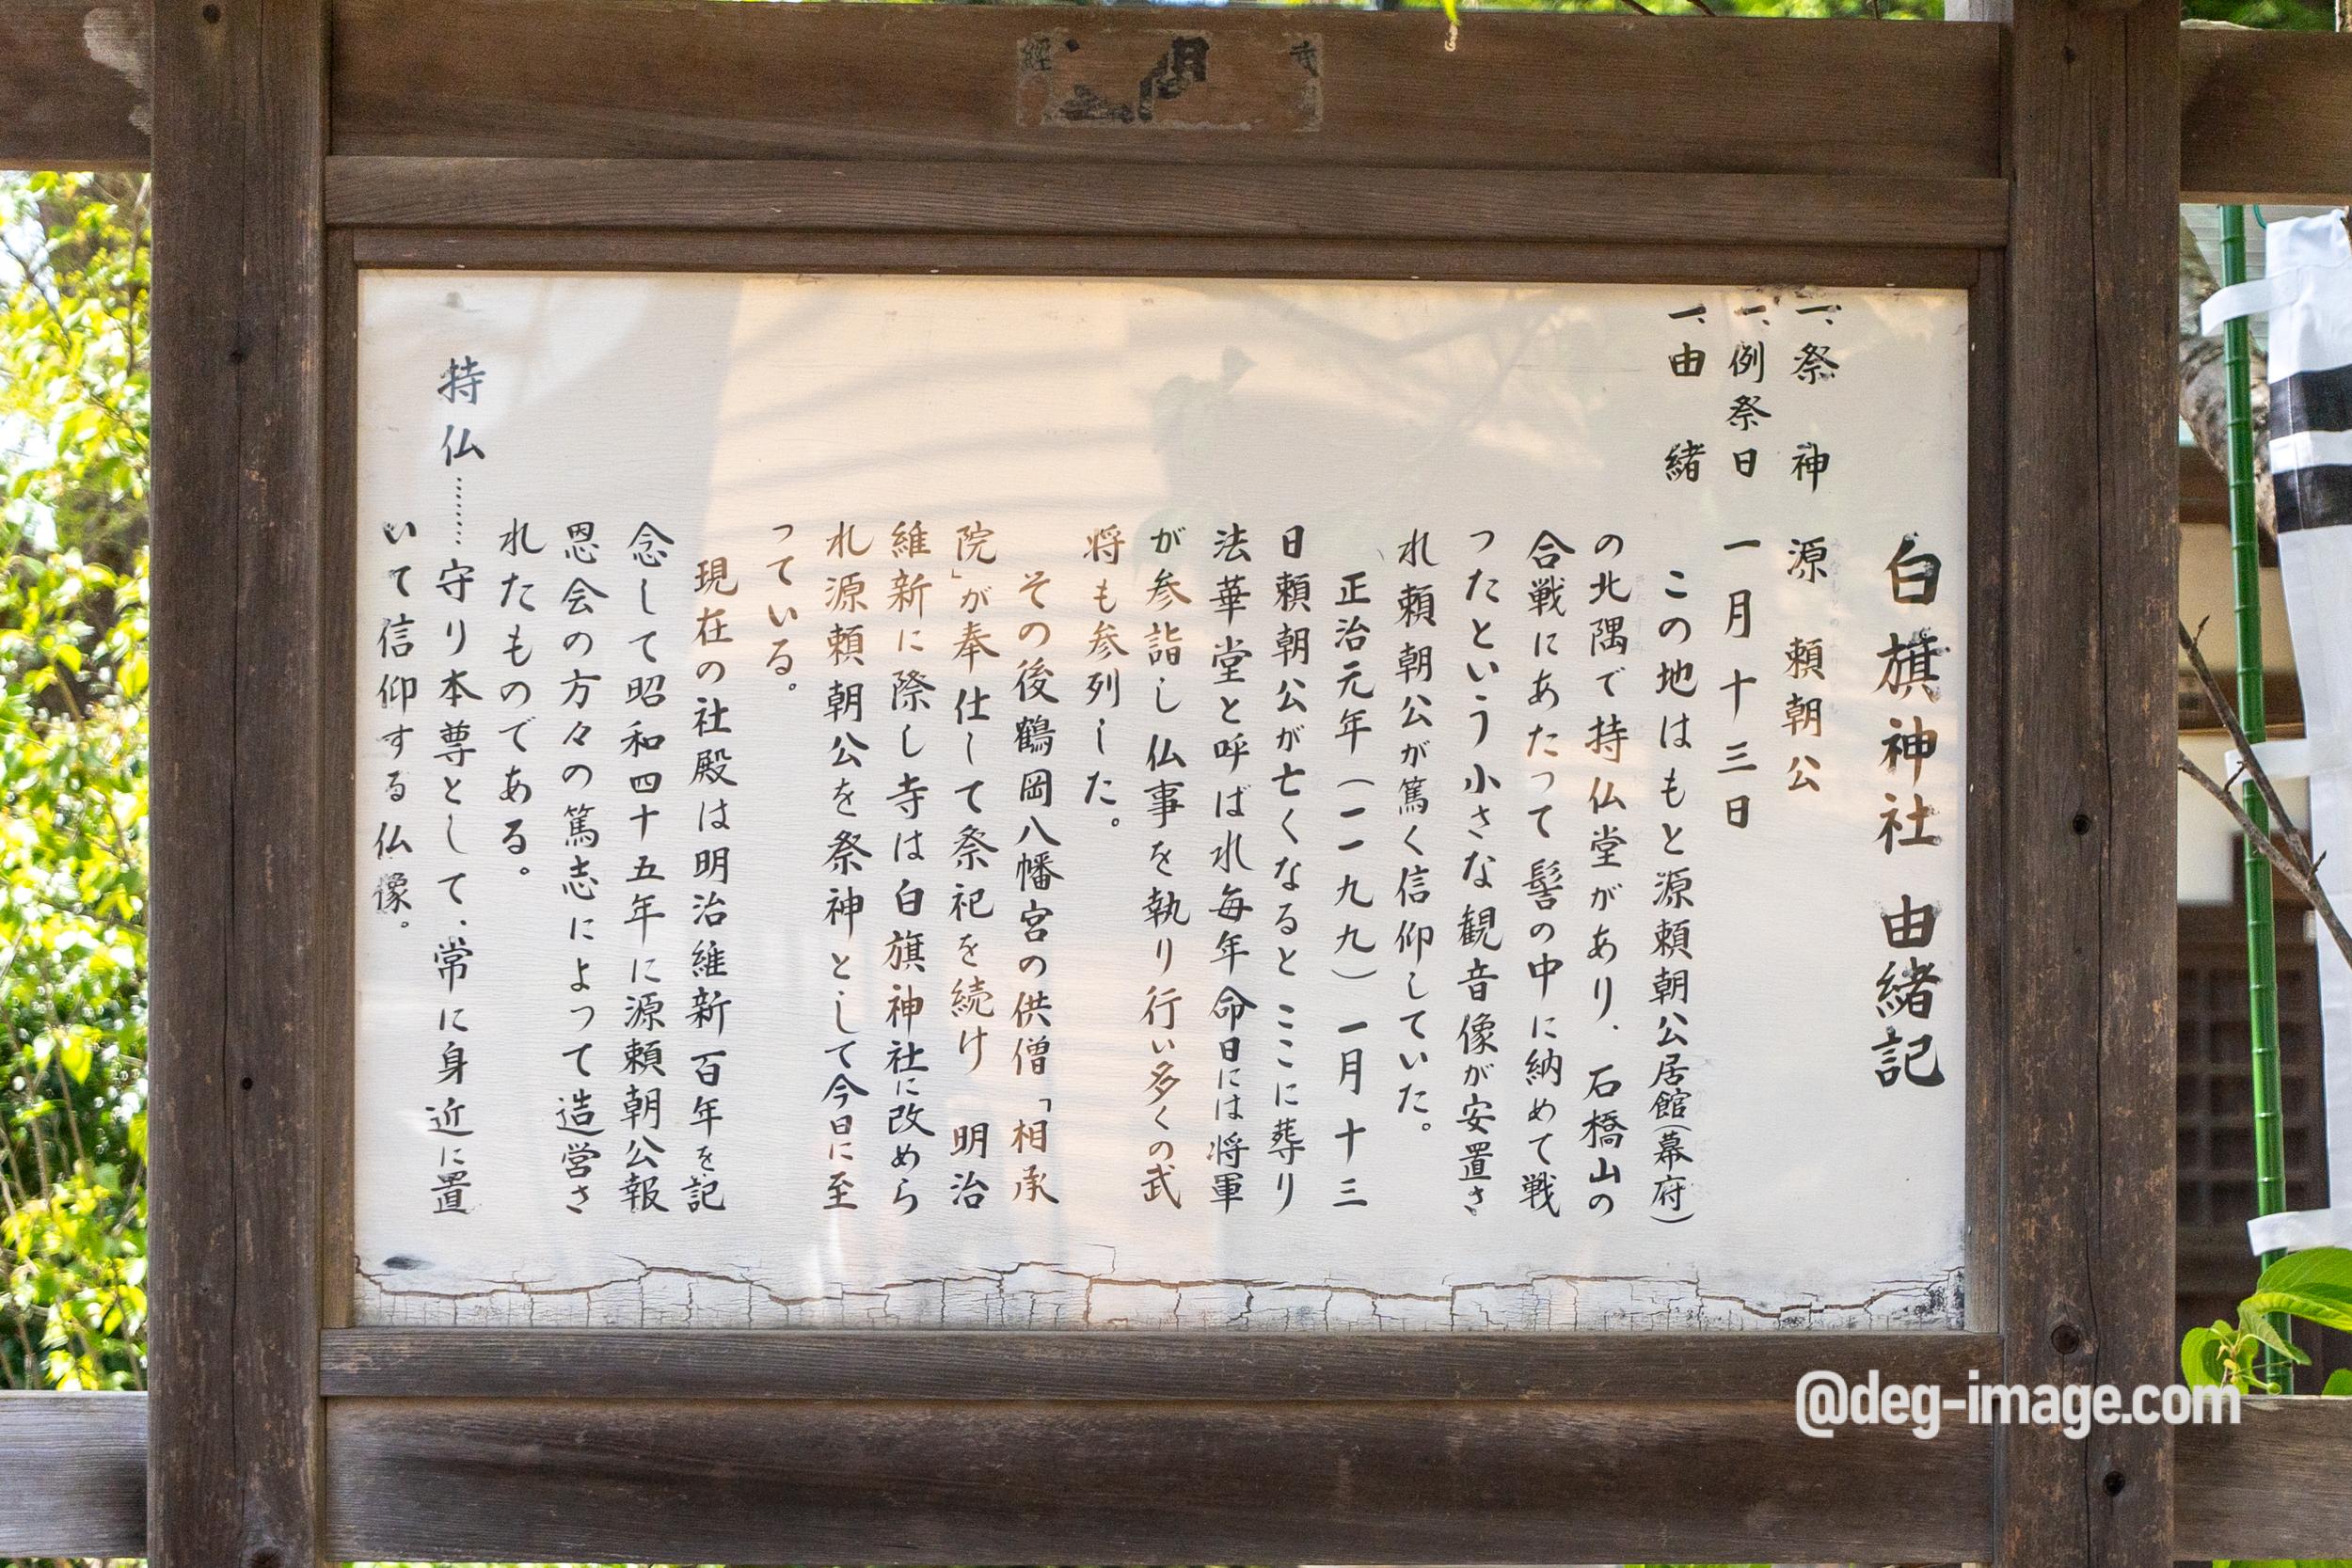 白旗神社 由緒記
一、祭 神 源 頼朝公
一、例祭日 一月十三日
一、由 緒
この地はもと源頼朝公居館(幕府)
の北隅で持仏堂があり、石橋山の
合戦にあたって髻の中に納めて戦
ったという小さな観音像が安置さ
れ頼朝公が篤く信仰していた。
正治元年(一一九九)一月十三
日頼朝公が亡くなると ここに葬り
法華堂と呼ばれ毎年命日には将軍
が参詣し仏事を執り行い多くの武
将も参列した。
その後鶴岡八幡宮の供僧「相承
院」が奉仕して祭祀を続け 明治
維新に際し寺は白旗神社に改めら
れ源頼朝公を祭神として今日に至
っている。
現在の社殿は明治維新百年を記
念して昭和四十五年に源頼朝公報
恩会の方々の篤志によって造営さ
れたものである。
持仏………守り本尊として、常に身近に置
いて信仰する仏像。
@deg-image.com